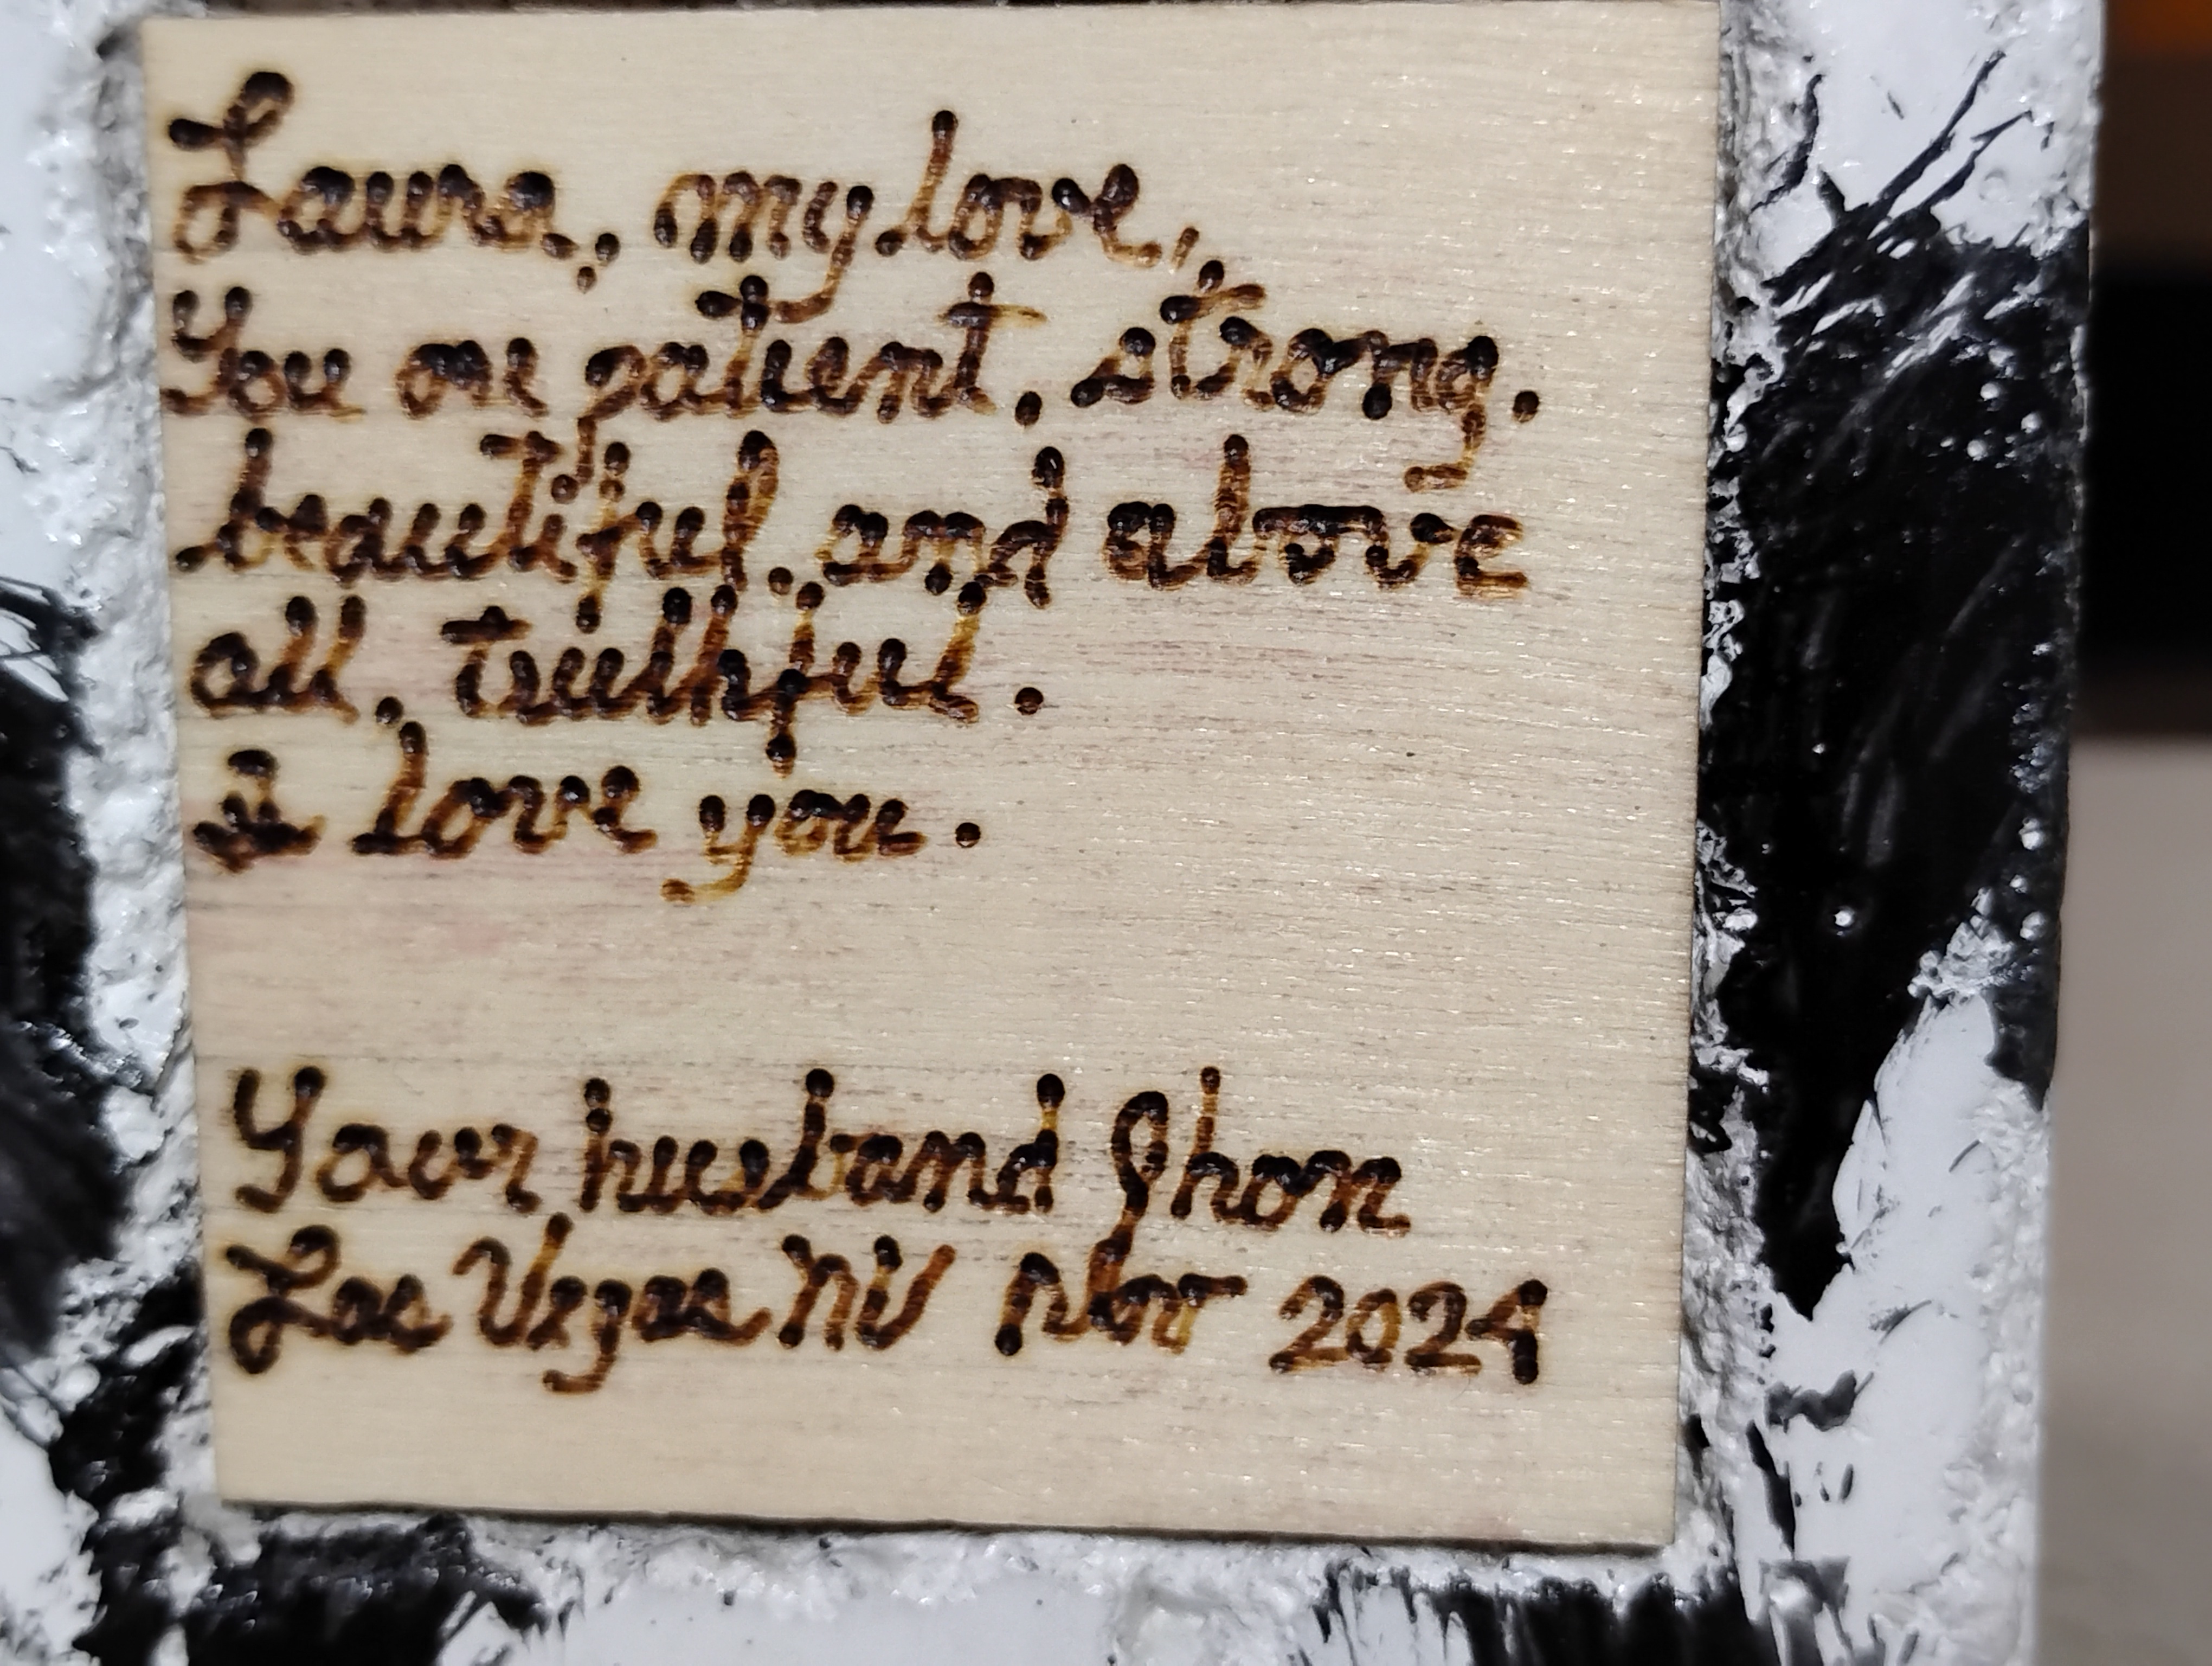 Laura, my love,
You are patient, strong,
beautiful, and above
all, truthful.
I love you.
Your husband Jhon
Las Vegas NV Nov 2024